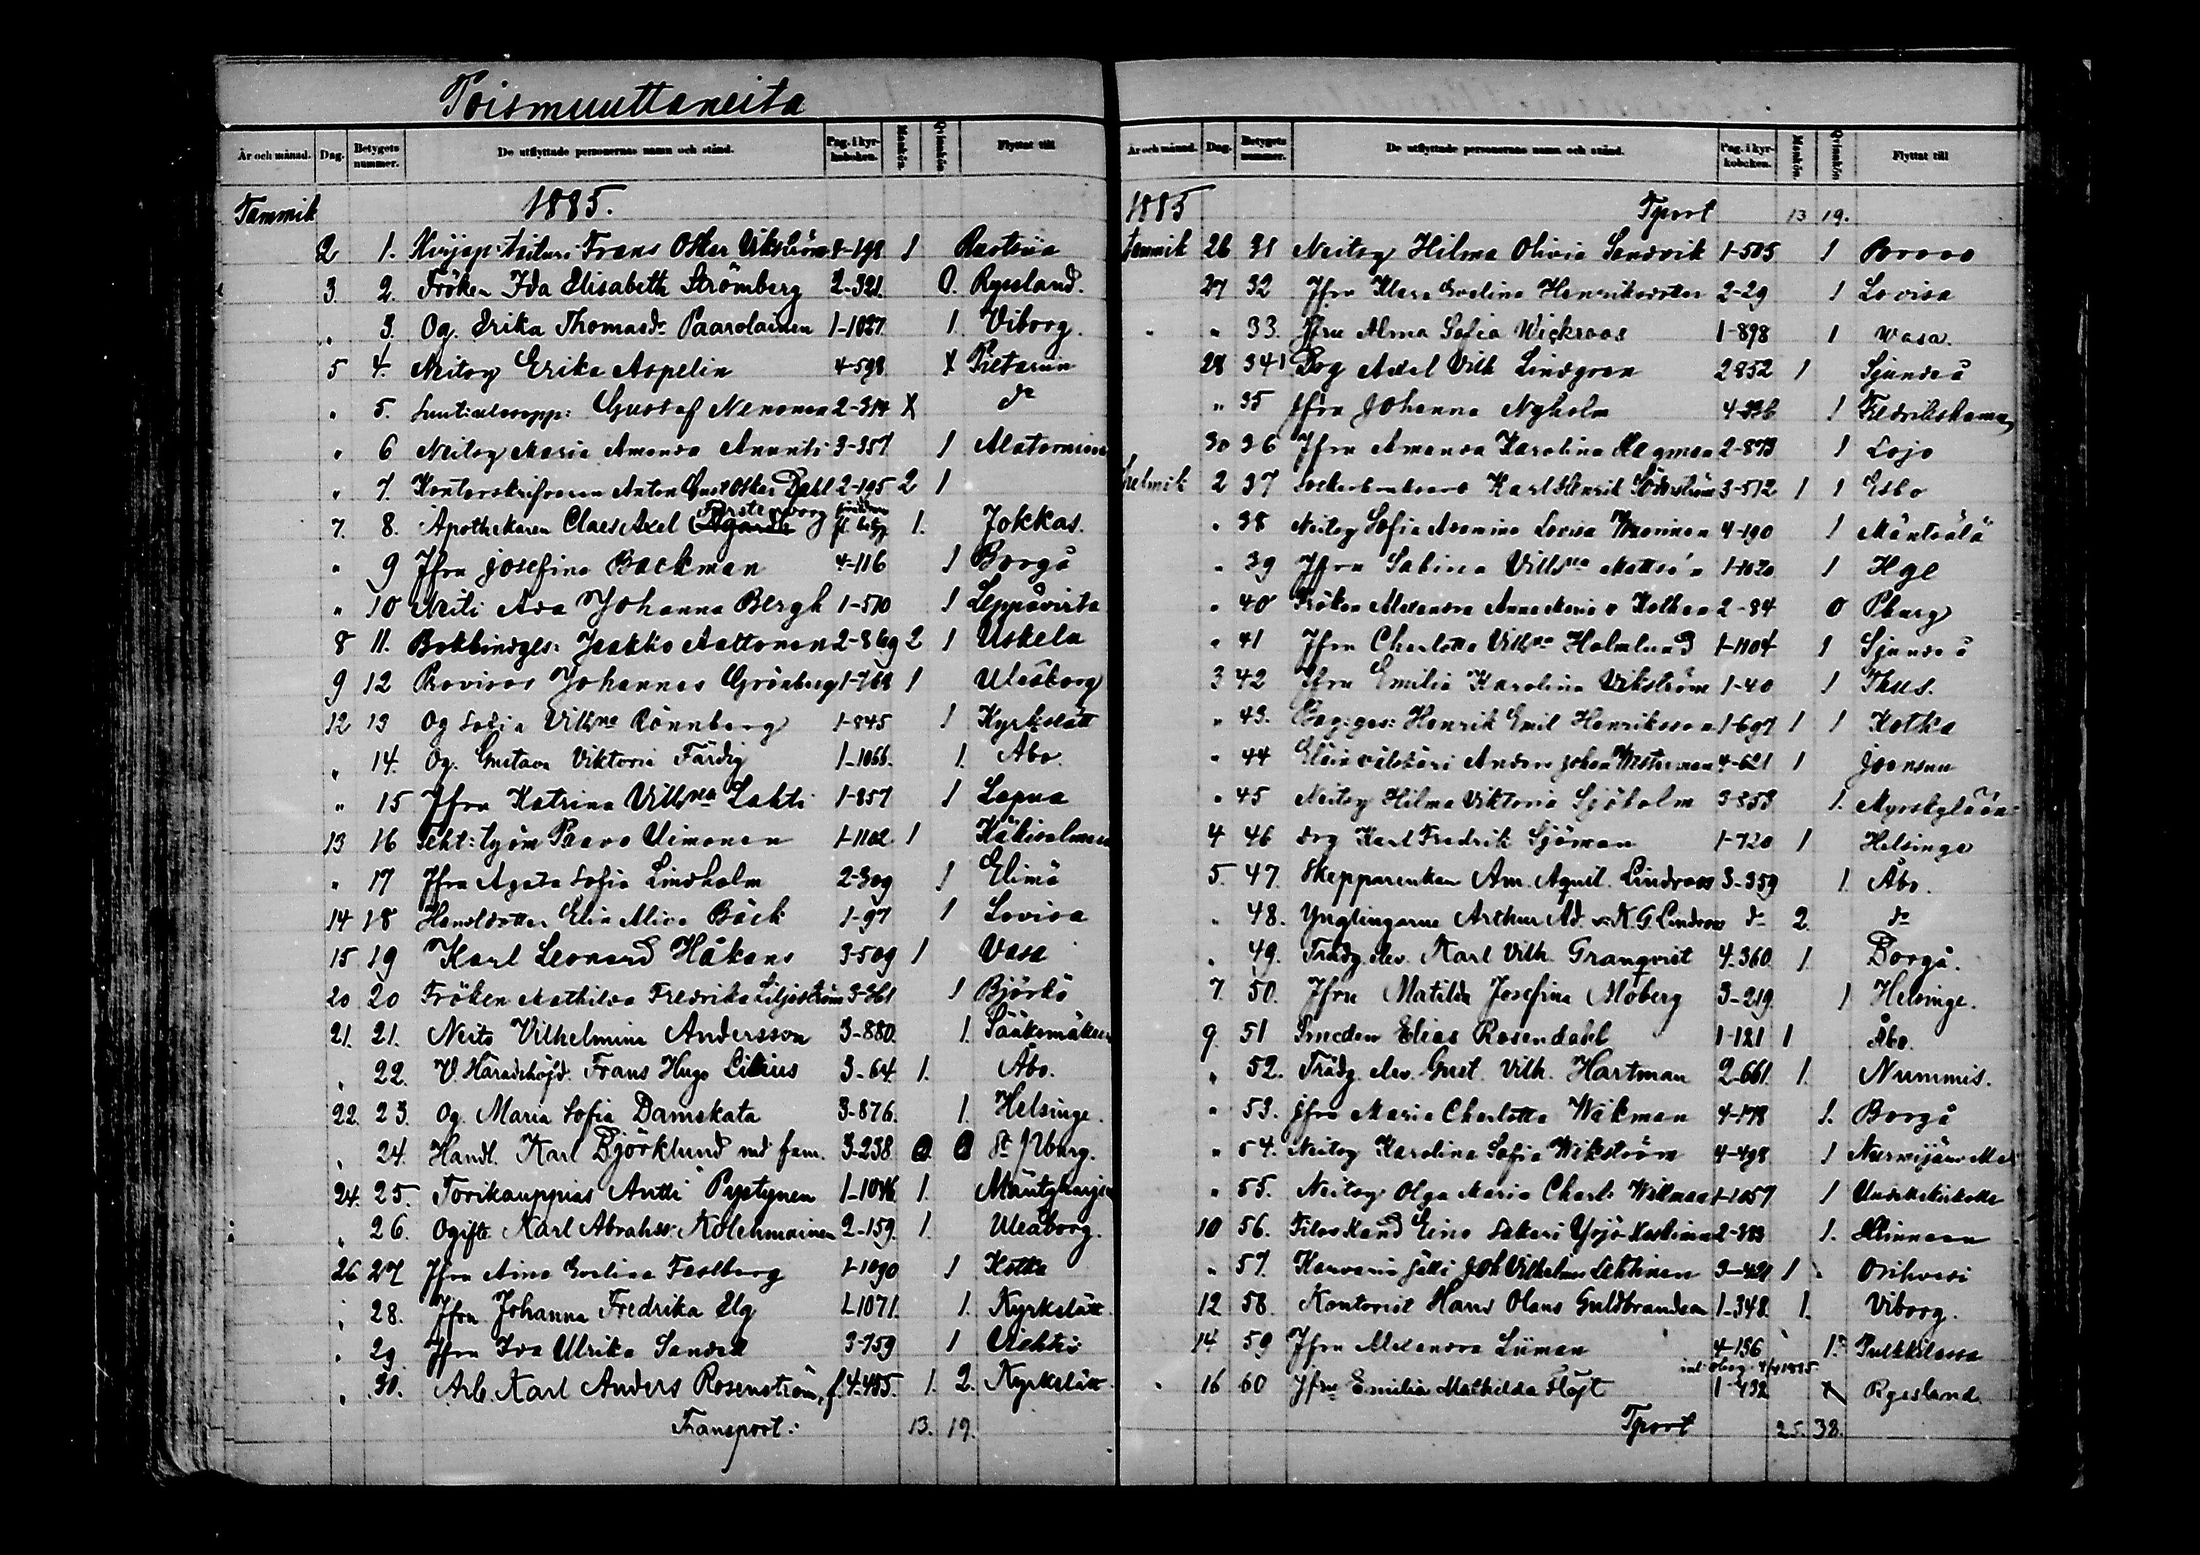 Poismuuttaneita
År och månad. Dag. Betygets nummer. De utflyttade personernas namn och stånd. Pag. i kyrkoboken. Mankön. Qvinnkön. Flyttat till
Tammik 1885.
2 1. Kirjap: Frans Oskar Vikström 4-198 1
3. 2. Fröken Ida Elisabeth Strömberg 2-321. 0. Ryssland.
„ 3. Og. Erika Thomasdr Paarolainen 1-1027. 1. Viborg.
5 4. Neitsy Erika Aspelin 4-598 X Pietarun
„ 5. Gustaf Nenonen 2-314 X dr
„ 6 Neitsy Maria Amanda Anunti 3-357 1 Alatornion
„ 7. Kontorskrifvaren Anton Gust Oskar Dahl 2-195 2 1
7. 8. Apothekaren Claes Axel Forstenborg 1. Jokkas.
„ 9 Jfru Josefina Backman 4-116 1 Borgå
„ 10 Neiti Ada Johanna Bergh 1-570 1 Leppävirta
8 11. Bokbindges: Jaakko Aaltonen 2-869 2 1 Uskela
9 12 Provisor Johannes Grönberg 1-768 1 Uleåborg
12 13 Og Sofia Vilhna Rönnberg 1-845 1 Kyrkslätt
„ 14. Og. Gustava Viktoria Färdig 1-1066. 1. Åbo.
„ 15 Jfru Katrina Vilhna Lahti 1-857 1 Lapua
13 16 Teht: työm Paavo Uimonen 1-1102. 1 Käkisalmen
„ 17 Jfru Agata Sofia Lindholm 2-309 1 Elimä
14 18 Handldotter Elin Alice Bäck 1-97 1 Lovisa
15 19 Karl Leonard Håkans 3-509 1 Vasa
20 20 Fröken Mathilda Fredrika Liljeström 3-361 1 Björkö
21. 21. Neito Vilhelmina Andersson 3-880. 1. Sääksmäkeen
„ 22. V. Häradshöfd. Frans Hugo Lilius 3-64. 1. Åbo.
22. 23. Og. Maria Sofia Damskata 3-876. 1. Helsinge.
„ 24. Handl. Karl Björklund md fam. 3-238. 0. 0 St Pburg.
24. 25. Torikauppias Antti Pystynen 1-1046. 1. Mäntyharju
„ 26. Ogifte Karl Abrahss. Kolehmainen 2-159. 1. Uleåborg.
26 27 Jfru Aina Evelina Faslberg 1-1090 1 Kotka
„ 28. Jfru Johanna Fredrika Elg 1-1071. 1. Kyrkslätt
„ 29 Jfru Ida Ulrika Sandell 3-759 1 Vichtis
„ 30. Arb. Karl Anders Rosenström, f. 4-485. 1. 2. Kyrkslätt
Transport: 13. 19.
År och månad. Dag. Betygets nummer. De utflyttade personernas namn och stånd. Pag. i kyrkoboken. Mankön. Qvinnkön. Flyttat till
1885 Tport 13 19.
Tammik 26 31 Neitsy Hilma Olivia Sandvik 1-505 1 Porvoo
27 32 Jfru Klara Evelina Henriksdotter 2-29 1 Lovisa
„ „ 33. Jfru Alma Sofia Wickroos 1-898 1 Wasa.
28 34 Dog Axel Vilh Lindgren 2852 1 Sjundeå
„ 35 Jfru Johanna Nyholm 4-336 1 Fredrikshamn
30 36 Jfru Amanda Karolina Hagman 2-873 1 Lojo
Helmik 2 37 Karl Henrik Söderström 3-572 1 1 Esbo
„ 38 Neitsy Sofia Lovisa 4-190 1 Mäntsälä
„ 39 Jfru Sabina Vilhna Mattsén 1-1020 1 Hge
„ 40 Fröken Alexandra Anna Maria v Kothen 2-84 0 Pburg
„ 41 Jfru Charlotta Vilhna Holmlund 1-1104 1 Sjundeå
3 42 Jfru Emilia Karolina Vikström 1-40 1 Thus.
„ 43. Bag:ges: Henrik Emil Henriksson 1-697 1 1 Kotka
„ 44 Eläinvälskäri Anders Johan Westerman 4-621 1 Joensuu
„ 45 Neitsy Hilma Viktoria Sjöholm 3-853 1. Myrskylään
4 46 drg Karl Fredrik Sjöman 1-720 1 Helsinge
5. 47. Skepparenkan Am. Aqvil. Lindroos 3-359 1. Åbo.
„ 48. Ynglingarne Arthur Ad. o. K. G. Lindroos dr 2. dr
„ 49. Trädg. elev. Karl Vilh. Granqvist 4.360. 1. Borgå.
7. 50. Jfru Matilda Josefina Moberg 3-219. 1 Helsinge.
9. 51 Smeden Elias Rosendahl 1-121 1 Åbo.
„ 52. Trädg. elev. Gust. Vilh. Hartman 2-661. 1. Nummis.
„ 53. Jfru Maria Charlotta Wikman 4-178 1. Borgå
„ 54. Neitsy Karolina Sofia Wikström 4-498 1 Nurmijärvi
„ 55. Neitsy Olga Maria Charl: Willman 1-1057 1 Uudenkirkolle
10 56. Filos Kand Eino Sakari Yrjö-Koskinen 2-383 1.
„ 57. Karvarin sälli Joh Vilhelm Lehtinen 3-421 1 Orihvesi
12 58. Kontorist Hans Olaus Guldbrandsen 1-348. 1. Viborg.
14 59 Jfru Alexandra Liiman 4-136 1. Pulkkilassa
16 60 Jfru Emilia Mathilda Flöjt 1-432 X Ryssland
Tport 25. 38.